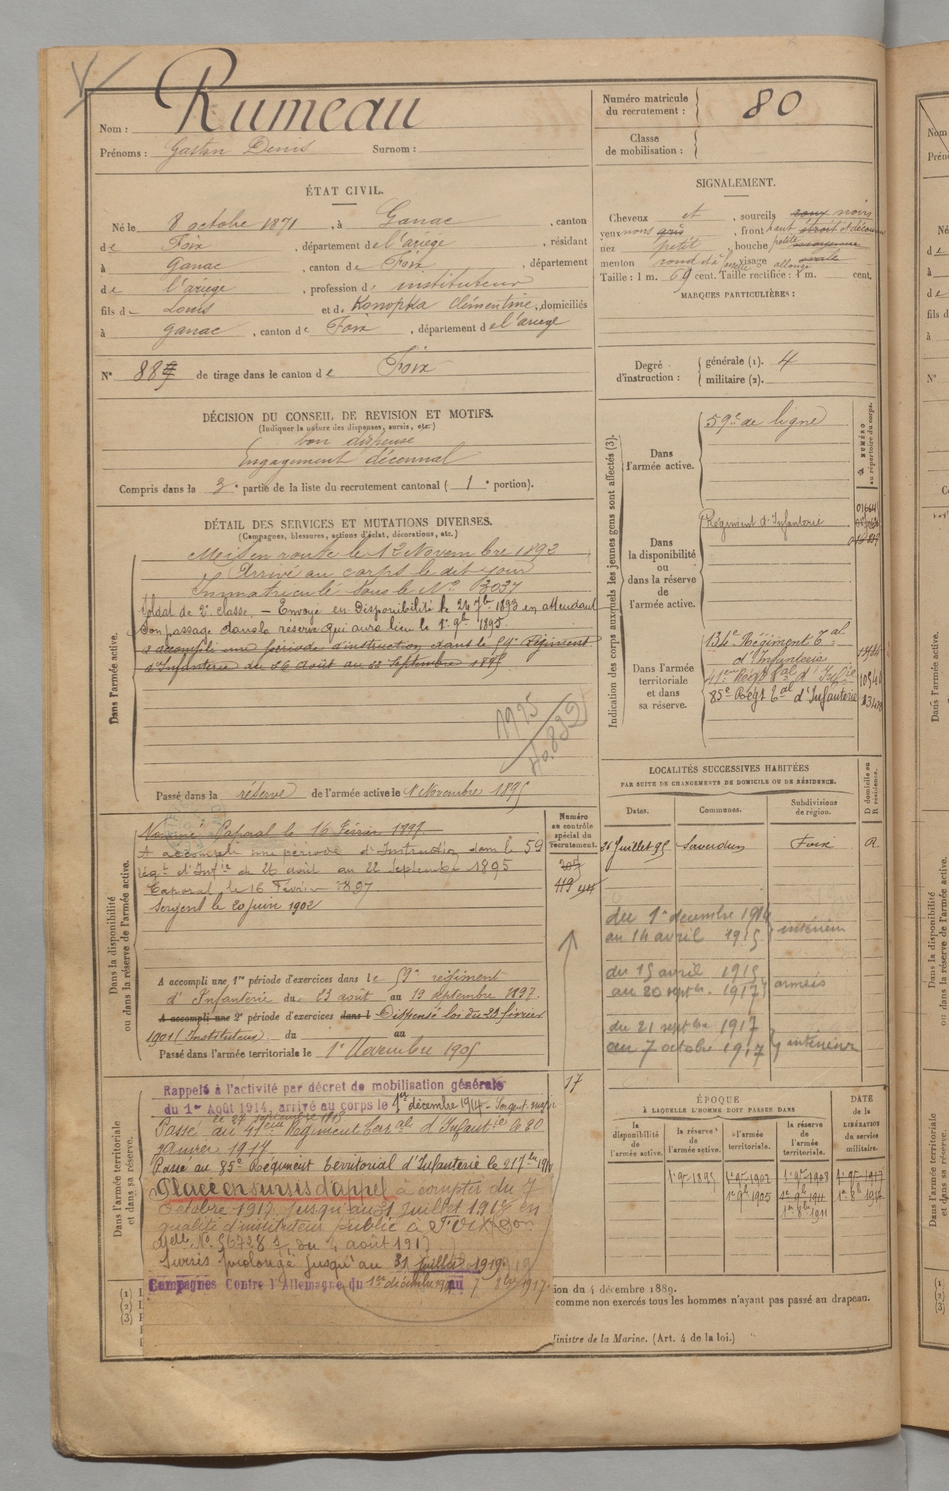 Nom : Rumeau
Prénoms : Gaston Denis Surnom :
Numéro matricule du recrutement : 80
Classe de mobilisation :
ÉTAT CIVIL.
Né le 8 octobre 1871, à Ganac, canton
de Foix, département de l'ariege, résidant
à Ganac, canton de Foix, département
de l'ariege, profession d' instituteur
fils de Louis et de Konopka Clémentine, domiciliés
à Ganac, canton de Foix, département de l'ariege
N° 88 de tirage dans le canton de Foix
SIGNALEMENT.
Cheveux et, sourcils roux noirs
yeux noirs gris, front haut étroit et découvert
nez petit, bouche petite moyenne
menton rond, visage allongé ovale
Taille : 1 m. 69 cent. Taille rectifiée : 1 m. cent.
MARQUES PARTICULIÈRES :
Degré d'instruction : générale (1). 4
militaire (2).
DÉCISION DU CONSEIL DE REVISION ET MOTIFS.
(Indiquer la nature des dispenses, sursis, etc.)
bon dispense
Engagement décennal
Compris dans la 3e partie de la liste du recrutement cantonal ( 1e portion).
DÉTAIL DES SERVICES ET MUTATIONS DIVERSES.
(Campagnes, blessures, actions d'éclat, décorations, etc.)
Dans l'armée active.
Mis en route le 12 Novembre 1892
Arrivé au corps le dit jour
Immatriculé sous le N° 3037
Soldat de 2e classe. — Envoyé en Disponibilité le 24 7bre 1893 en attendant
son passage dans la réserve qui aura lieu le 1er 9bre 1895.
a accompli une période d'instruction dans le 59e Régiment
d'Infanterie du 26 août au 22 septembre 1895
1925
Passé dans la réserve de l'armée active le 1 Novembre 1895
Indication des corps auxquels les jeunes gens sont affectés (3).
NUMÉRO au répertoire du corps.
Dans l'armée active.
59e de ligne
Dans la disponibilité ou dans la réserve de l'armée active.
Régiment d'Infanterie
Dans l'armée territoriale et dans sa réserve.
134e Régiment Tal
d'Infanterie
41eme Régt Tal d'Infie
85e Régt Tal d'Infanterie
LOCALITÉS SUCCESSIVES HABITÉES
PAR SUITE DE CHANGEMENTS DE DOMICILE OU DE RÉSIDENCE.
Dates. Communes. Subdivisions de région. D domicile ou R résidence.
26 Juillet 95 Saverdun Foix R.
du 1er decembre 1914
au 14 avril 1915 intérieur
du 15 avril 1915
au 20 septbre 1917 armées
du 21 septbre 1917
au 7 octobre 1917 intérieur
Dans la disponibilité ou dans la réserve de l'armée active.
Numéro au contrôle spécial du recrutement.
Nommé Caporal le 16 Février 1897
A accompli une période d'Instruction dans le 59
régt d'Infie du 26 août au 22 septembre 1895
Caporal le 16 Février 1897
Sergent le 20 juin 1902
A accompli une 1re période d'exercices dans le 59e régiment
d'Infanterie du 23 août au 19 septembre 1897.
A accompli une 2e période d'exercices dans l Dispensé loi du 21 février
1901 (Instituteur) du au
Passé dans l'armée territoriale le 1er Novembre 1905
Dans l'armée territoriale et dans sa réserve.
17
Rappelé à l'activité par décret de mobilisation générale
du 1er Août 1914, arrivé au corps le 1er décembre 1914 - Sergent major
le 27 septembre 1915
Passé au 41eme Régiment Terral d'Infantie le 20
janvier 1917.
Passé au 85e Régiment territorial d'Infanterie le 21 7bre 1917
Placé en sursis d'appel à compter du 7
octobre 1917 jusqu'au 31 juillet 1918 en
qualité d'instituteur public à Foix
du 4 août 1917
Sursis prolongé jusqu'au 31 juillet 1919
Campagnes Contre l'Allemagne du 1er décembre 1914 au 7 8bre 1917
ÉPOQUE
À LAQUELLE L'HOMME DOIT PASSER DANS
la disponibilité de l'armée active. la réserve de l'armée active. l'armée territoriale. la réserve de l'armée territoriale. DATE de la LIBÉRATION du service militaire.
1er 9bre 1895 1er 9bre 1902 1er 9bre 1908 1er 9bre 1917
1er 9bre 1905 1er 9bre 1911
1er 8bre 1911
ion du 4 décembre 1889.
comme non exercés tous les hommes n'ayant pas passé au drapeau.
Ministre de la Marine. (Art. 4 de la loi.)